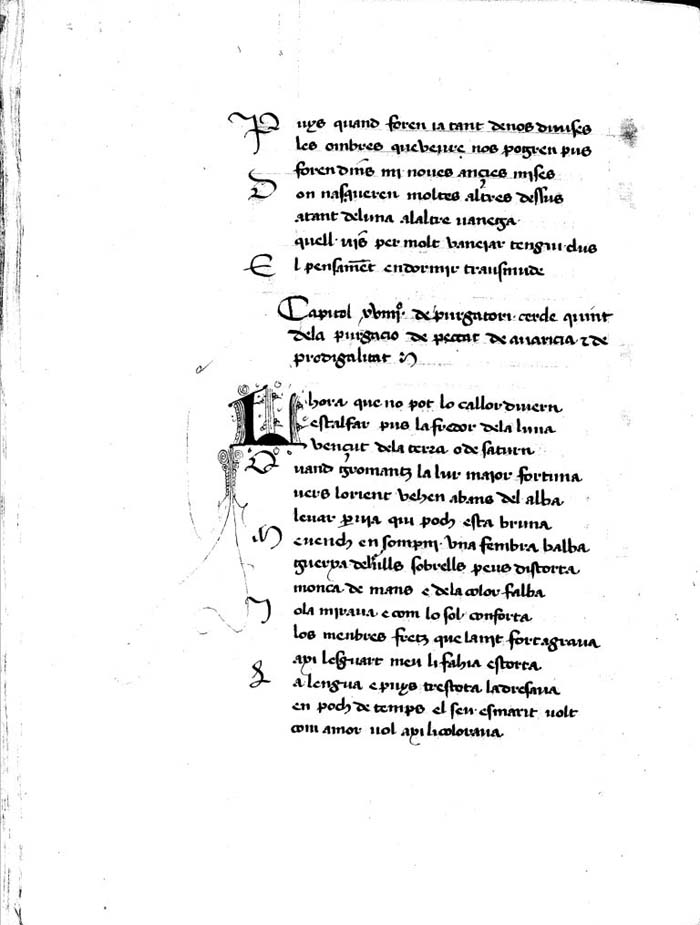 Puys quand foren ia tant denos diuises
les ombres queveure nos pogren pus
foren dins mi noues ancies mises
Don nasqueren moltes altres dessus
atant deluna alaltre vanega
quell uis per molt vaneiar tengui clus
El pensament endormir trasmude
Capitol xviiij. de purgatori cercle quint
dela purgacio de peccat de auaricia e de
prodigalitat
Lahora que no pot lo callor diuern
escalfar pus la fredor dela luna
vençut dela terra o de saturn
Quand gromantz la lur maior fortuna
uers lorient vehen abans del alba
leuar per uia qui poch esta bruna
Meuench en sompni vna fembra balba
guerxa delsulls sobrells peus distorta
monca de mans e dela color falba
Jo la miraua e com lo sol conforta
los menbres fretz que la nit fort agraua
axi lesguart meu li fahia estorta
La lengua e puys trestota ladresaua
en poch de temps el seu esmarit volt
com amor uol axi licoloraua